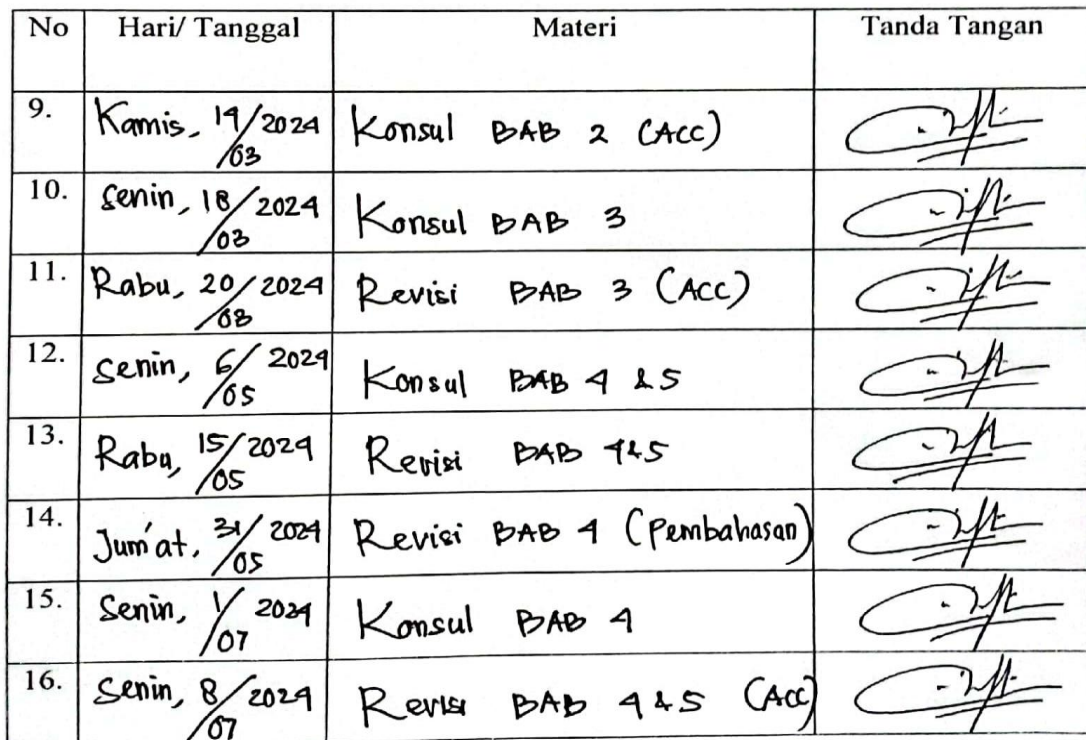 No Hari/ Tanggal Materi Tanda Tangan
9. Kamis, 14/03/2024 Konsul BAB 2 (Acc)
10. Senin, 18/03/2024 Konsul BAB 3
11. Rabu, 20/03/2024 Revisi BAB 3 (Acc)
12. Senin, 6/05/2024 Konsul BAB 4 & 5
13. Rabu, 15/05/2024 Revisi BAB 4&5
14. Jum'at, 31/05/2024 Revisi BAB 4 (Pembahasan)
15. Senin, 1/07/2024 Konsul BAB 4
16. Senin, 8/07/2024 Revisi BAB 4&5 (Acc)